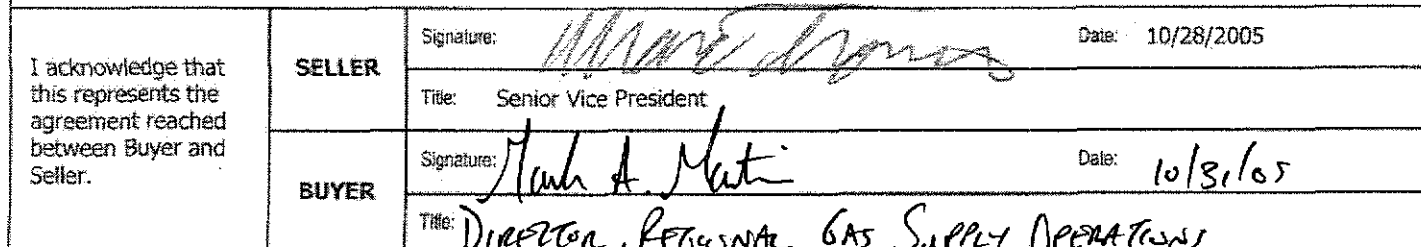 I acknowledge that
this represents the
agreement reached
between Buyer and
Seller.
SELLER
Signature: Date: 10/28/2005
Title: Senior Vice President
BUYER
Signature: Mark A. Martin Date: 10/31/05
Title: DIRECTOR, REGIONAL GAS SUPPLY OPERATIONS